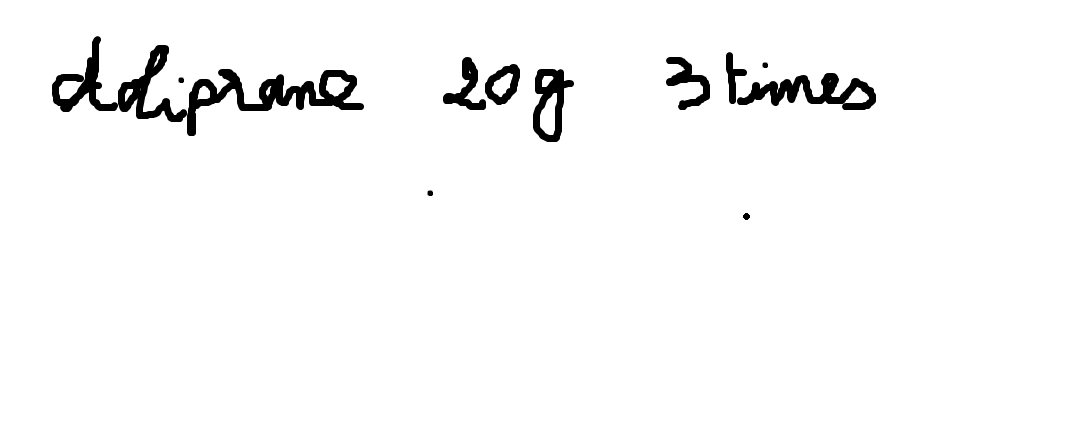 doliprane 20g 3 times